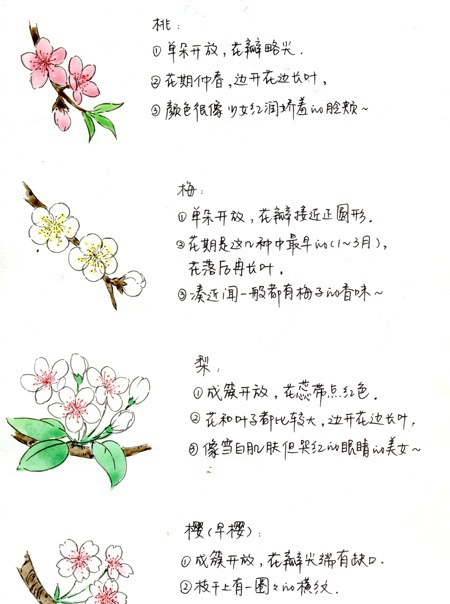 桃:
①单朵开放,花瓣略尖.
②花期仲春,边开花边长叶,
③颜色很像少女红润娇羞的脸颊~
梅:
①单朵开放,花瓣接近正圆形.
②花期是这几种中最早的(1~3月),
花落后再长叶.
③凑近闻一般都有梅子的香味~
梨:
①成簇开放,花蕊带点红色.
②花和叶子都比较大,边开花边长叶,
③像雪白肌肤但哭红的眼睛的美女~
樱(早樱):
①成簇开放,花瓣尖端有缺口.
②枝干上有一圈々的横纹.